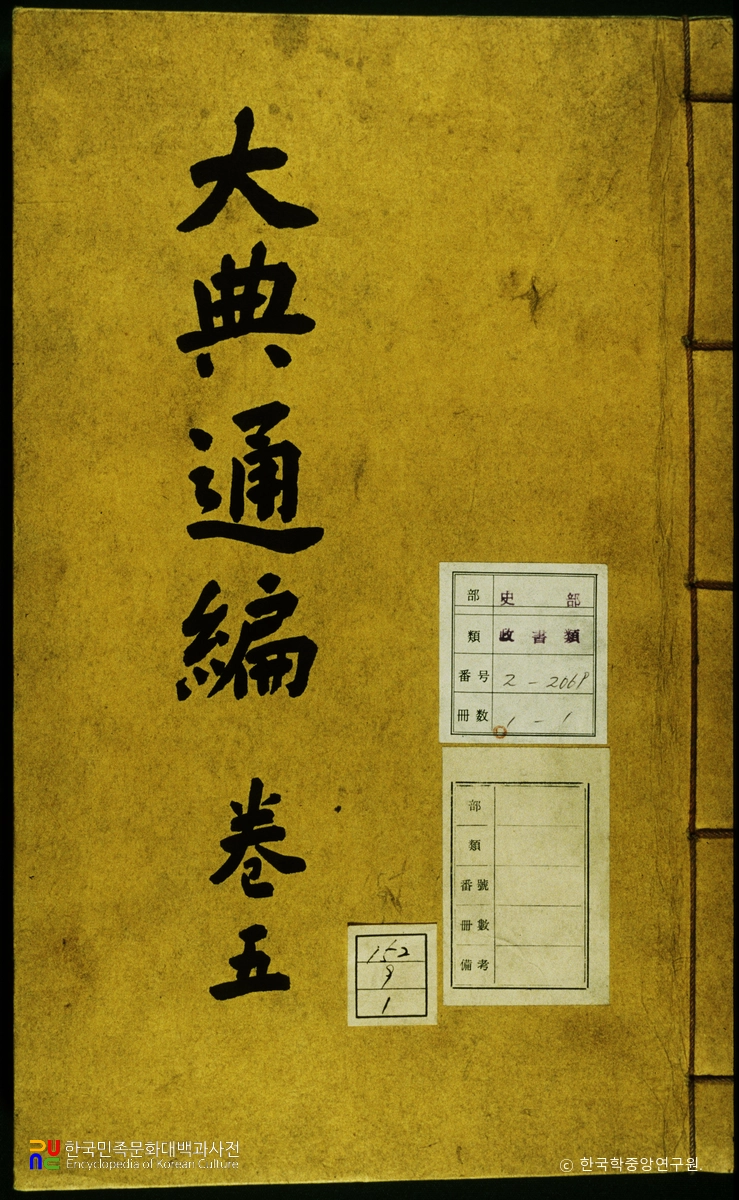 大典通編 卷五
部 史 部
類 政書類
番号 2-2069
冊数 1-1
部
類
番號
冊數
備考
152
9
1
한국민족문화대백과사전
Encyclopedia of Korean Culture
© 한국학중앙연구원.